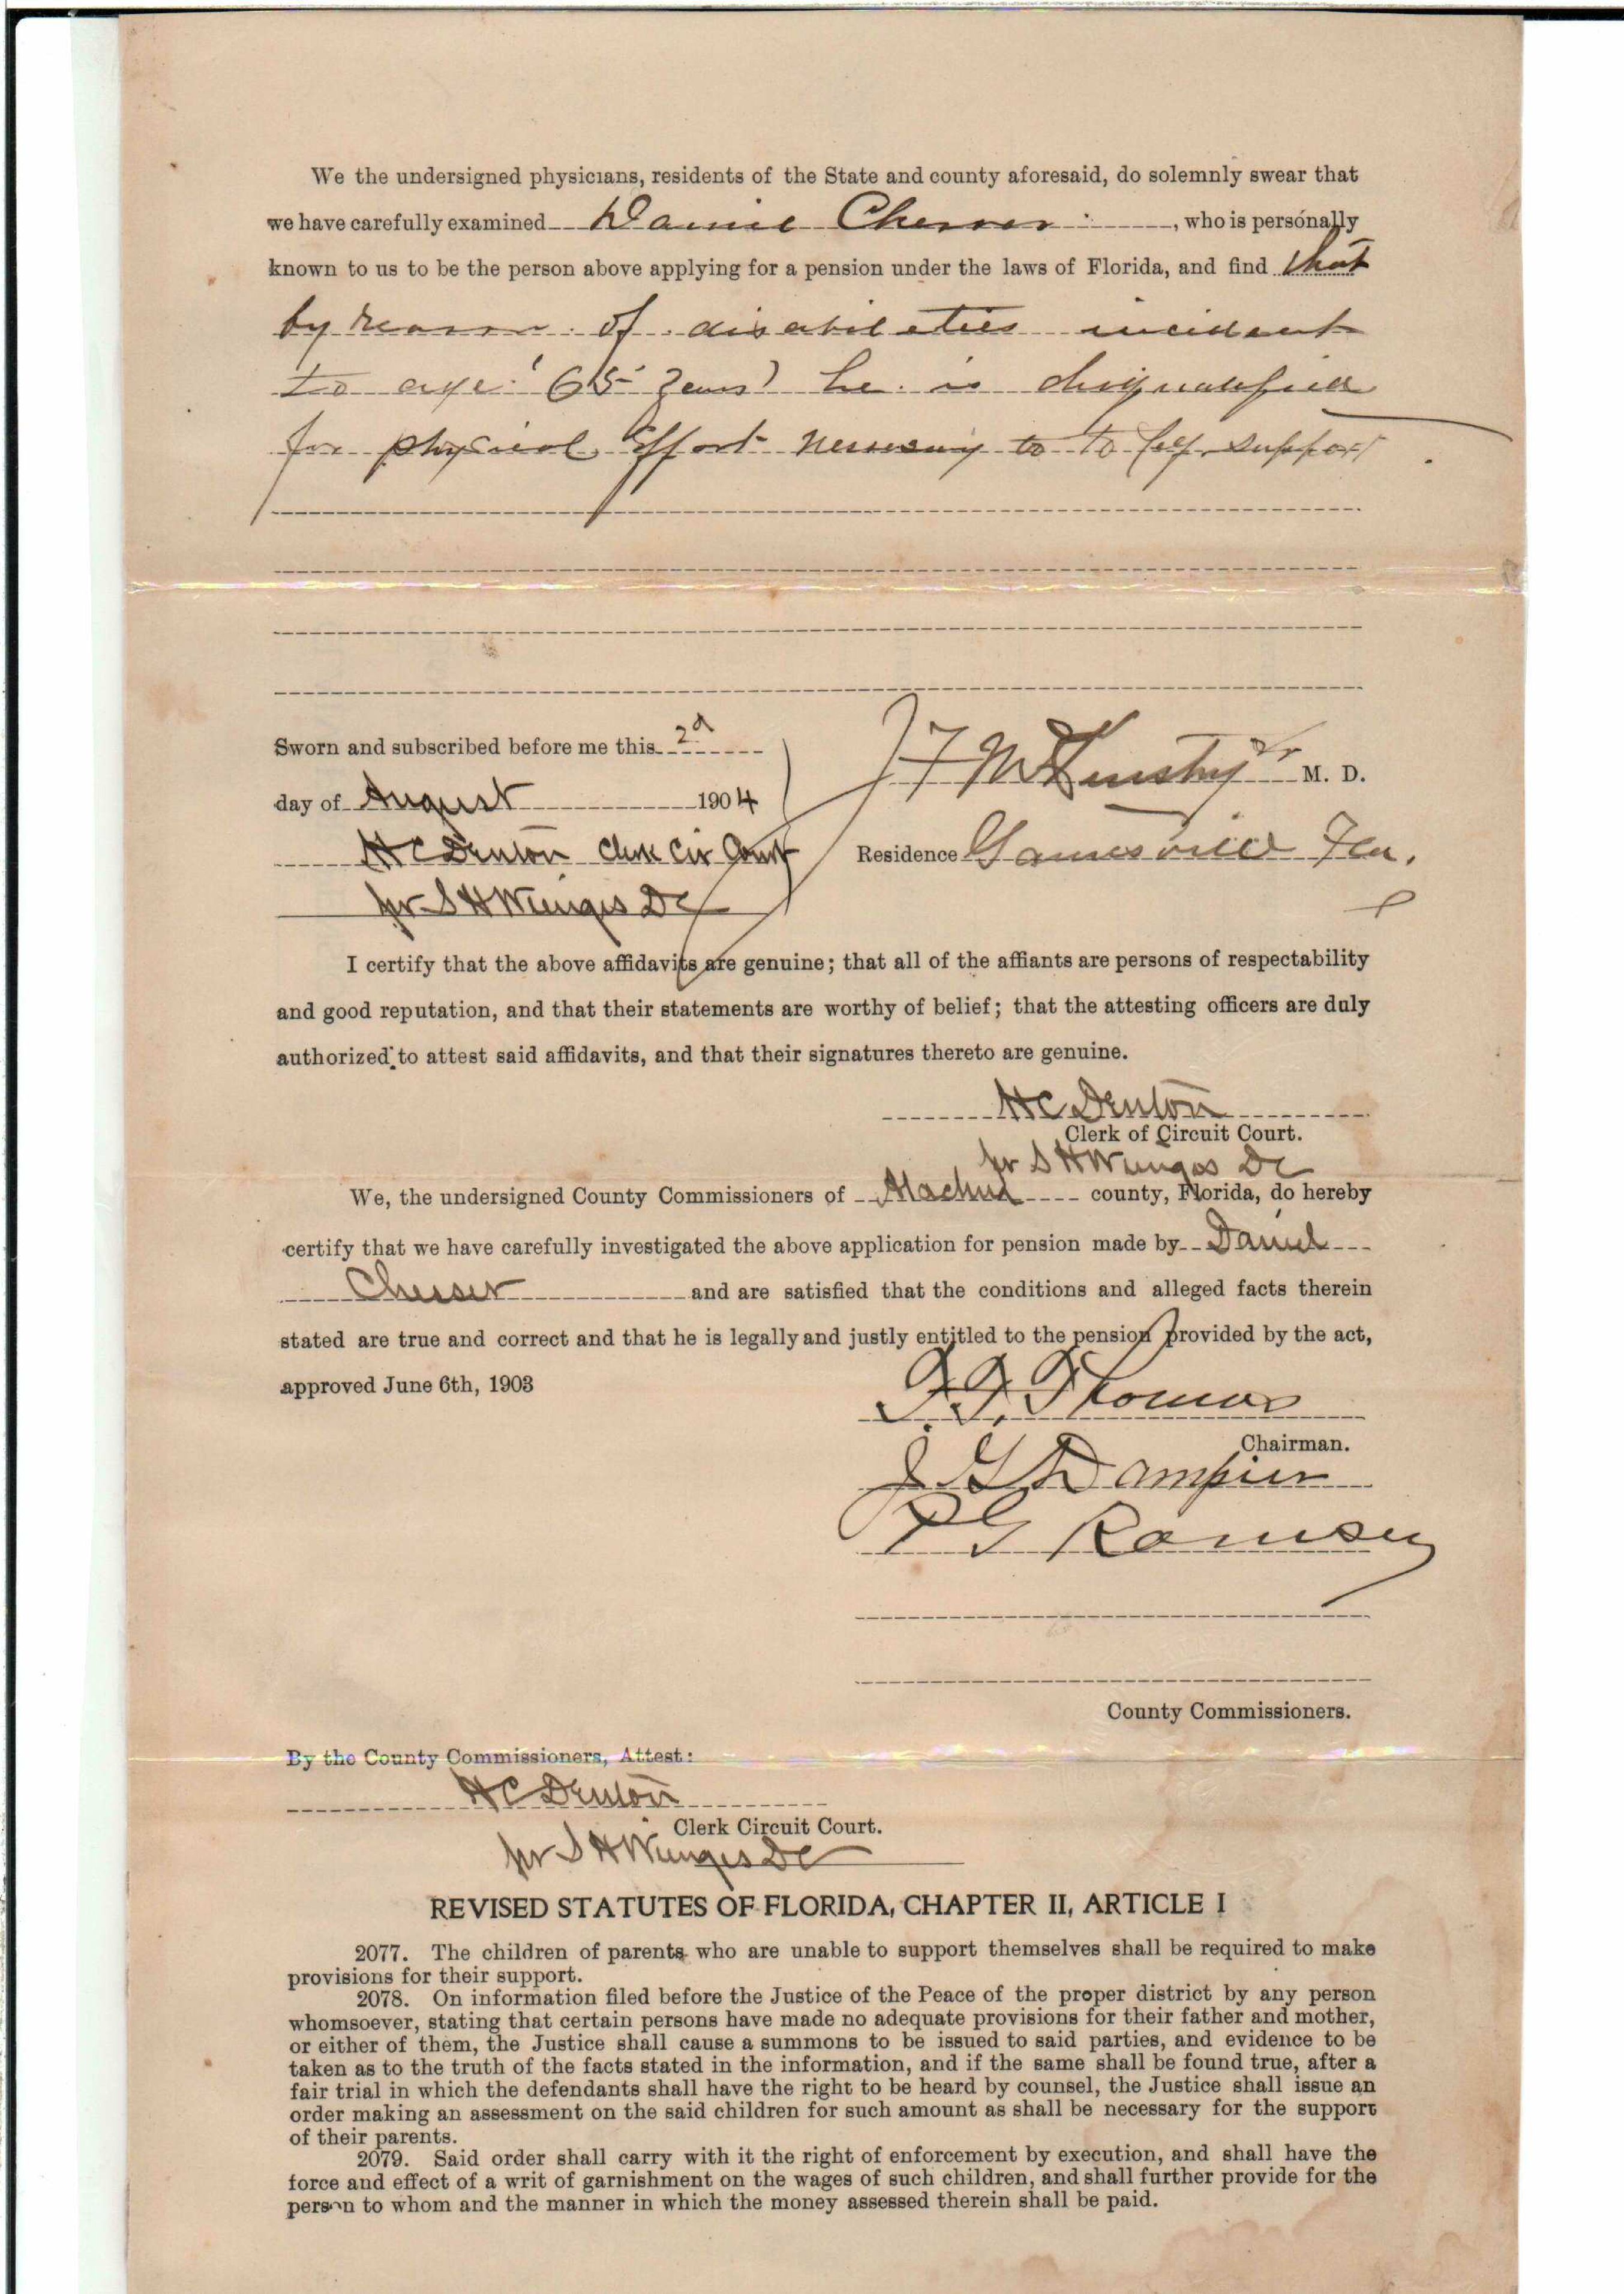 We the undersigned physicians, residents of the State and county aforesaid, do solemnly swear that
we have carefully examined Daniel Chesser, who is personally
known to us to be the person above applying for a pension under the laws of Florida, and find that
by reason of disabilities incident
to age (65 years) he is disqualified
for physical effort necessary to to self support
Sworn and subscribed before me this 2d
day of August 1904
J F McKinstry Jr M. D.
H C Denton Clerk Cir Court
Residence Gainesville Fla.
pr S H Wienges DC
I certify that the above affidavits are genuine; that all of the affiants are persons of respectability
and good reputation, and that their statements are worthy of belief; that the attesting officers are duly
authorized to attest said affidavits, and that their signatures thereto are genuine.
H C Denton
Clerk of Circuit Court.
pr S H Wienges DC
We, the undersigned County Commissioners of Alachua county, Florida, do hereby
certify that we have carefully investigated the above application for pension made by Daniel
Chesser and are satisfied that the conditions and alleged facts therein
stated are true and correct and that he is legally and justly entitled to the pension provided by the act,
approved June 6th, 1903
Thomas
Chairman.
J G Dampier
P G Ramsey
County Commissioners.
By the County Commissioners, Attest:
H C Denton
Clerk Circuit Court.
pr S H Wienges DC
REVISED STATUTES OF FLORIDA, CHAPTER II, ARTICLE I
2077. The children of parents who are unable to support themselves shall be required to make
provisions for their support.
2078. On information filed before the Justice of the Peace of the proper district by any person
whomsoever, stating that certain persons have made no adequate provisions for their father and mother,
or either of them, the Justice shall cause a summons to be issued to said parties, and evidence to be
taken as to the truth of the facts stated in the information, and if the same shall be found true, after a
fair trial in which the defendants shall have the right to be heard by counsel, the Justice shall issue an
order making an assessment on the said children for such amount as shall be necessary for the support
of their parents.
2079. Said order shall carry with it the right of enforcement by execution, and shall have the
force and effect of a writ of garnishment on the wages of such children, and shall further provide for the
person to whom and the manner in which the money assessed therein shall be paid.